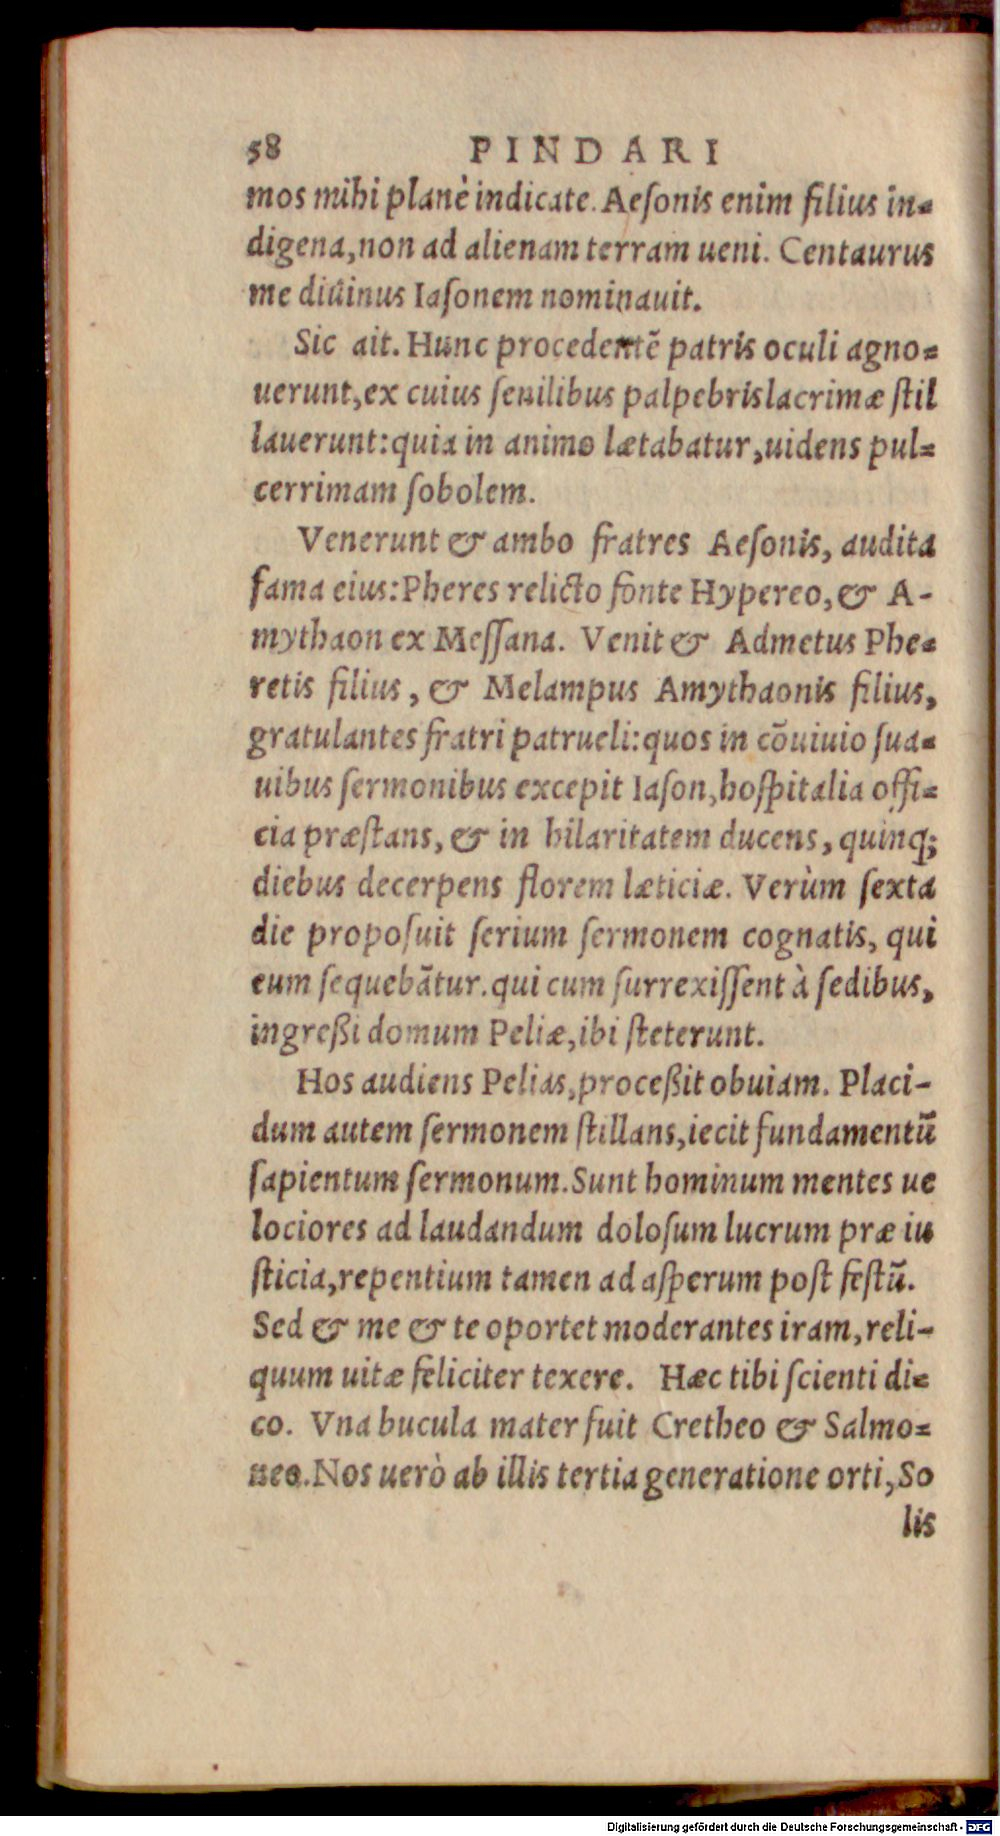 58 PINDARI
mos mihi planè indicate. Aeſonis enim filius in=
digena, non ad alienam terram ueni. Centaurus
me diuinus Iaſonem nominauit.
Sic ait. Hunc procedentẽ patris oculi agno=
uerunt, ex cuius ſenilibus palpebris lacrimæ ſtil
lauerunt: quia in animo lætabatur, uidens pul=
cerrimam ſobolem.
Venerunt & ambo fratres Aeſonis, audita
fama eius: Pheres relicto fonte Hypereo, & A-
mythaon ex Meſſana. Venit & Admetus Phe=
retis filius, & Melampus Amythaonis filius,
gratulantes fratri patrueli: quos in cõuiuio ſua=
uibus ſermonibus excepit Iaſon, hoſpitalia offi=
cia præſtans, & in hilaritatem ducens, quinq;
diebus decerpens florem læticiæ. Verùm ſexta
die propoſuit ſerium ſermonem cognatis, qui
eum ſequebãtur. qui cum ſurrexiſſent à ſedibus,
ingreßi domum Peliæ, ibi ſteterunt.
Hos audiens Pelias, proceßit obuiam. Placi-
dum autem ſermonem ſtillans, iecit fundamentũ
ſapientum ſermonum. Sunt hominum mentes ue
lociores ad laudandum doloſum lucrum præ iu
ſticia, repentium tamen ad aſperum poſt feſtũ.
Sed & me & te oportet moderantes iram, reli-
quum uitæ feliciter texere. Hæc tibi ſcienti di=
co. Vna bucula mater fuit Cretheo & Salmo=
neo. Nos uerò ab illis tertia generatione orti, So
lis
Digitalisierung gefördert durch die Deutsche Forschungsgemeinschaft - DFG